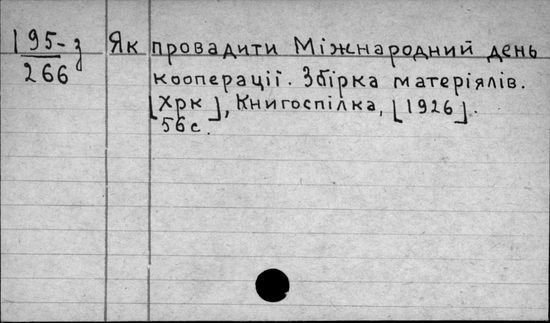 195-з
266
Як провадити Міжнародний день
кооперації. Збірка матеріялів.
[Хрк], Книгоспілка, [1926].
56с.